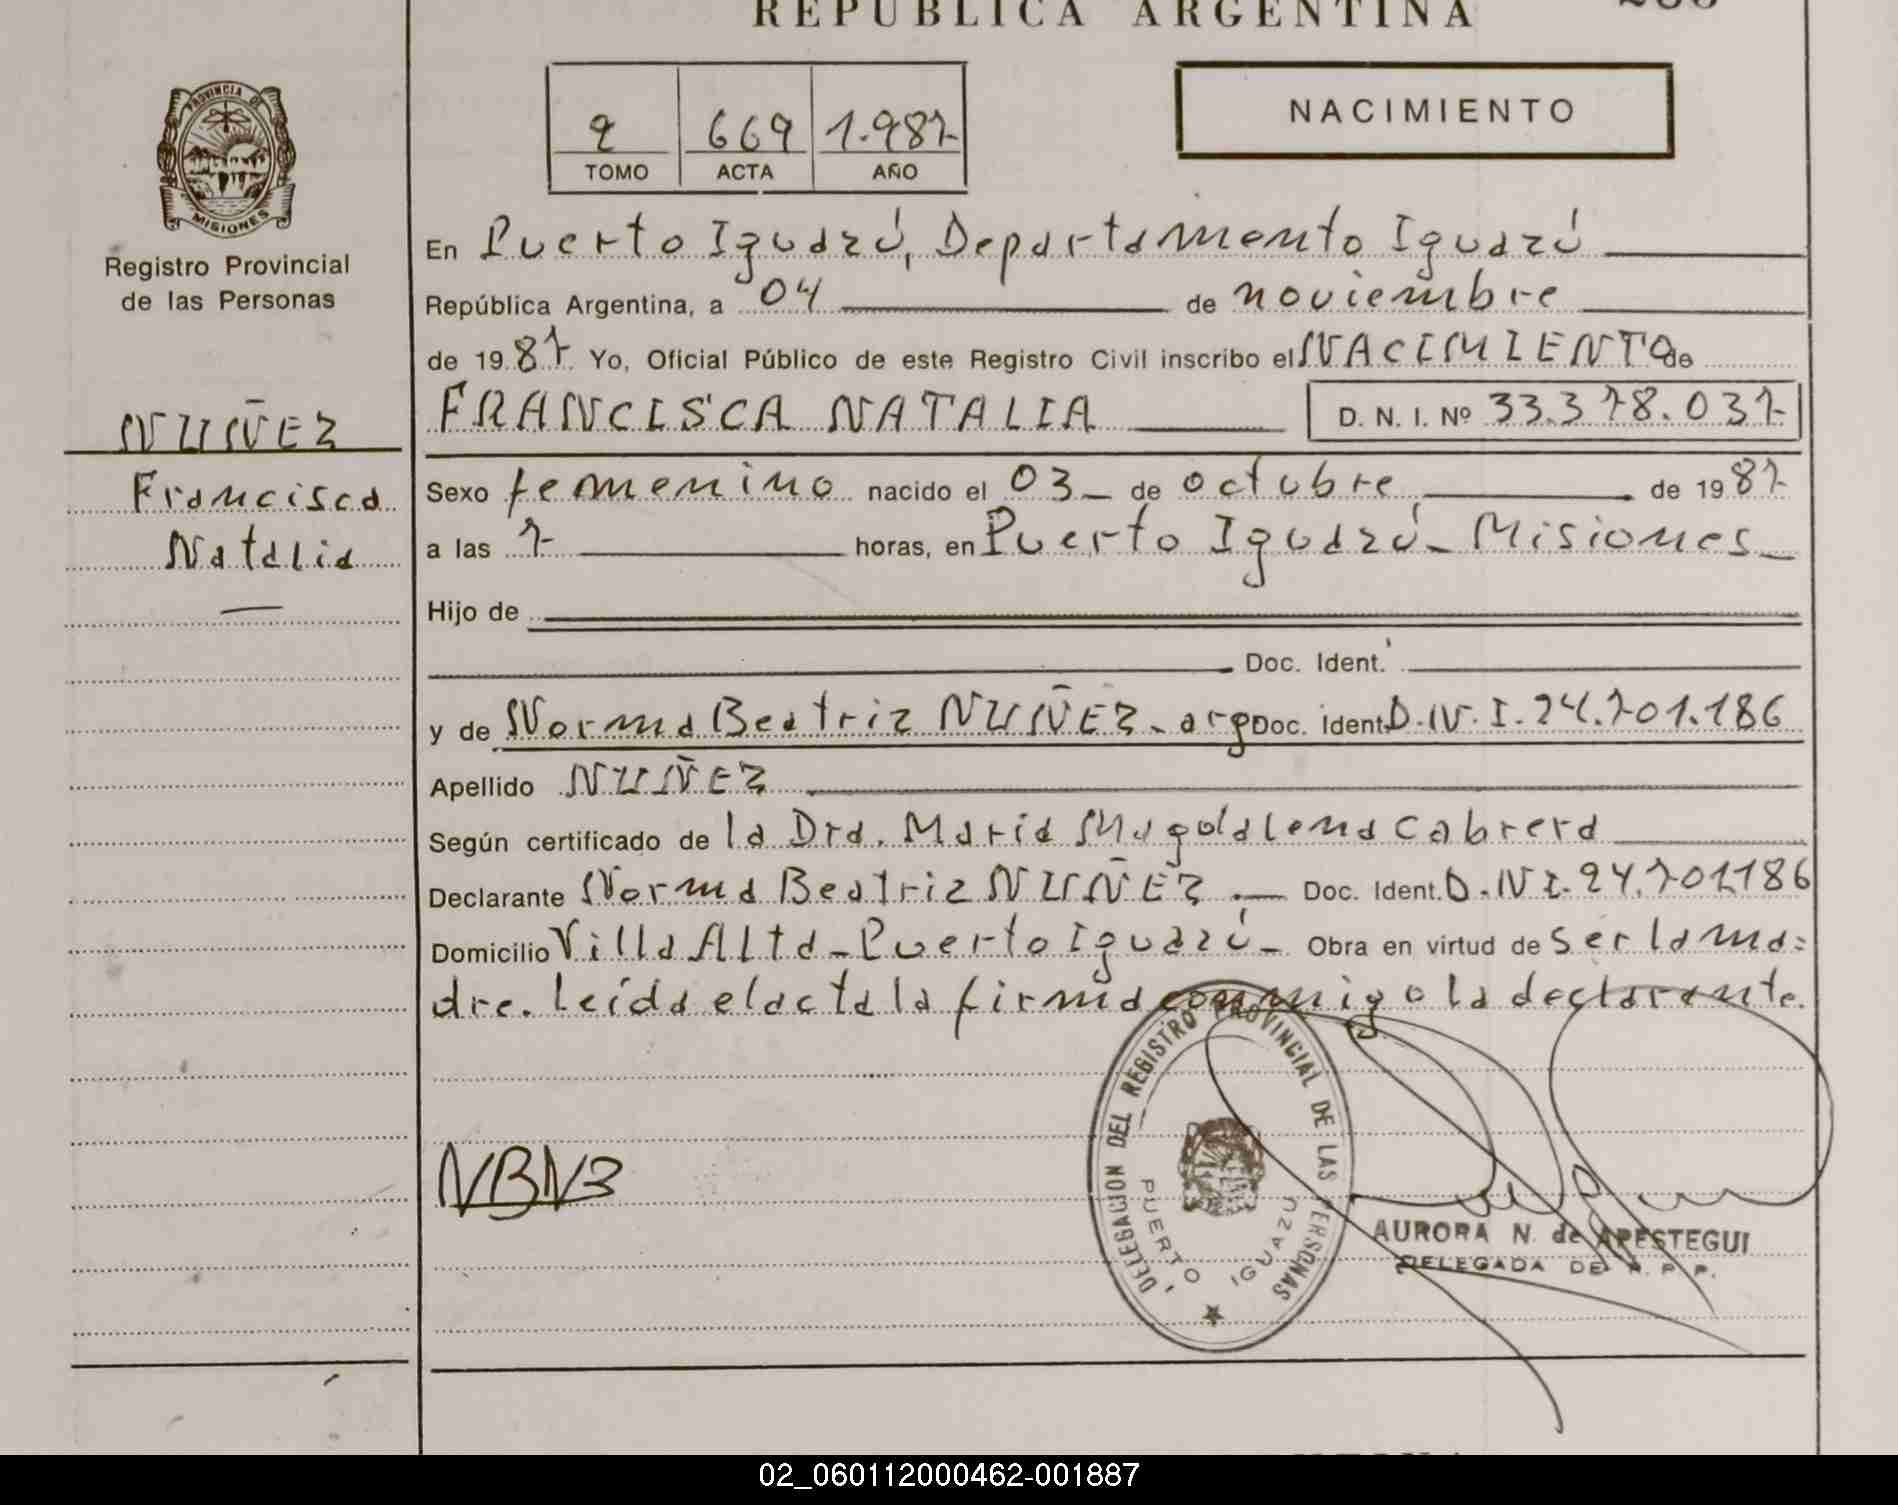 REPUBLICA ARGENTINA
PROVINCIA DE
MISIONES
Registro Provincial
de las Personas
2 669 1.987
TOMO ACTA AÑO
NACIMIENTO
En Puerto Iguazú, Departamento Iguazú
República Argentina, a 04 de noviembre
de 1987 Yo, Oficial Público de este Registro Civil inscribo el NACIMIENTO de
FRANCISCA NATALIA D. N. I. Nº 33.378.037
NUÑEZ
Francisca
Natalia
Sexo femenino nacido el 03 de octubre de 1987
a las 7 horas, en Puerto Iguazú - Misiones
Hijo de
Doc. Ident.
y de Norma Beatriz NUÑEZ - arg Doc. ident. D.N.I. 24.701.186
Apellido NUÑEZ
Según certificado de la Dra. Maria Magdalena Cabrera
Declarante Norma Beatriz NUÑEZ.- Doc. Ident. D.N.I. 24.701186
Domicilio Villa Alta - Puerto Iguazú - Obra en virtud de ser la ma=
dre. Leída el acta la firma conmigo la declarante.
NBNZ
DELEGACION DEL REGISTRO PROVINCIAL DE LAS PERSONAS
PUERTO IGUAZU
AURORA N. de APESTEGUI
DELEGADA DE R. P. P.
02_060112000462-001887